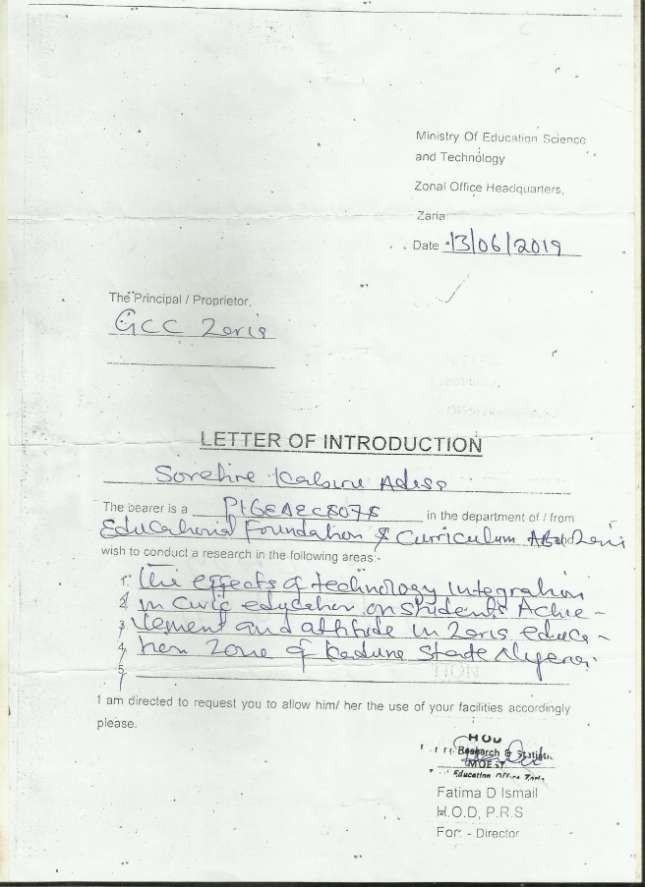 Ministry Of Education Science
and Technology
Zonal Office Headquarters,
Zaria
Date 13/06/2019
The Principal / Proprietor,
GCC Zaria
LETTER OF INTRODUCTION
Adisa
The bearer is a P16EAEC8078 in the department of / from
Educational Foundation & Curriculum ABU Zaria
wish to conduct a research in the following areas:-
1. The effects of technology Integration
2. in Civic education on students Achie-
3. vement and attitude in Zaria educa-
4. tion Zone of Kaduna State Nigeria.
5.
I am directed to request you to allow him/ her the use of your facilities accordingly
please.
HOD
Research & Statistic
MOEST
Education Office Zaria
Fatima D Ismail
H.O.D, P.R.S
For: - Director